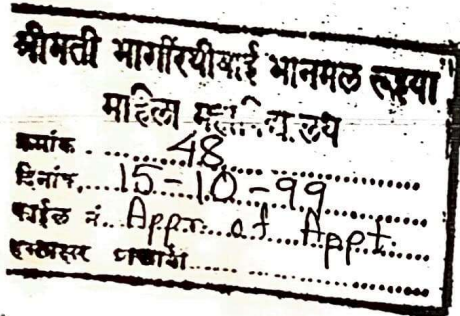 श्रीमती भागीरथीबाई भानमल रूइया
माहिला महाविद्यालय
क्रमांक 48
दिनांक 15-10-99
फाईल नं. Appr. of Appt.
हस्ताक्षर